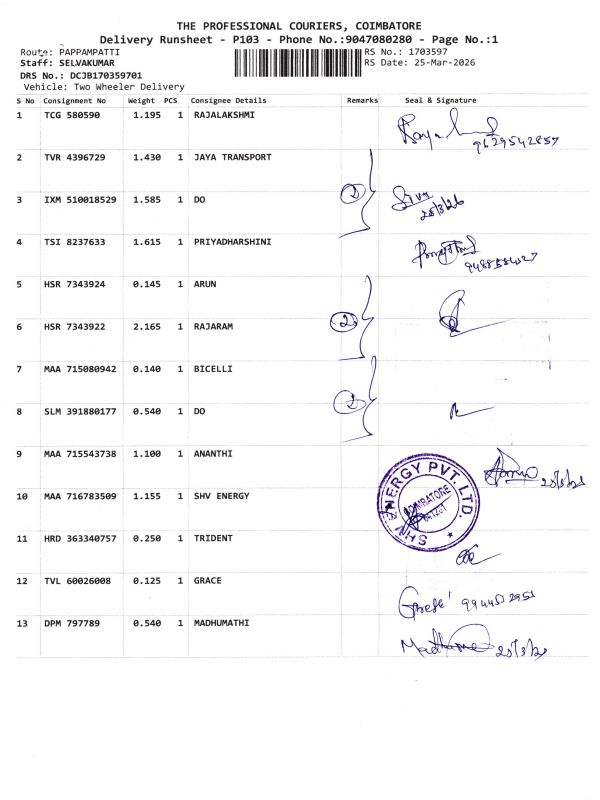 THE PROFESSIONAL COURIERS, COIMBATORE
Delivery Runsheet - P103 - Phone No.:9047080280 - Page No.:1
Route: PAPPAMPATTI RS No.: 1703597
Staff: SELVAKUMAR RS Date: 25-Mar-2026
DRS No.: DCJB170359701
Vehicle: Two Wheeler Delivery
S No Consignment No Weight PCS Consignee Details Remarks Seal & Signature
1 TCG 580590 1.195 1 RAJALAKSHMI
9629542857
2 TVR 4396729 1.430 1 JAYA TRANSPORT
3 IXM 510018529 1.585 1 DO 2
25/3/26
4 TSI 8237633 1.615 1 PRIYADHARSHINI
5 HSR 7343924 0.145 1 ARUN
6 HSR 7343922 2.165 1 RAJARAM 2
7 MAA 715080942 0.140 1 BICELLI
8 SLM 391880177 0.540 1 DO 2
9 MAA 715543738 1.100 1 ANANTHI
10 MAA 716783509 1.155 1 SHV ENERGY
SHV ENERGY PVT. LTD.
COIMBATORE
11 HRD 363340757 0.250 1 TRIDENT
12 TVL 60026008 0.125 1 GRACE
13 DPM 797789 0.540 1 MADHUMATHI